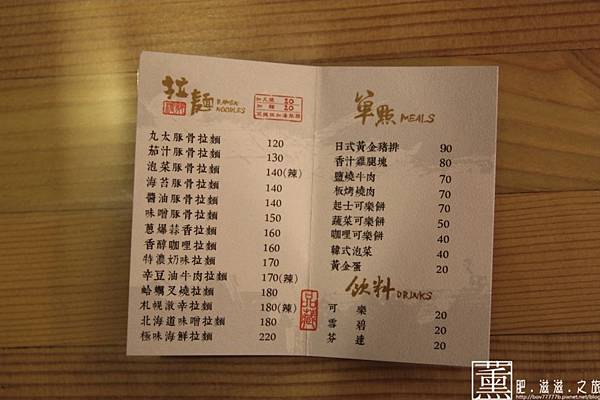 拉麵 RAMEN NOODLES
加叉燒 20
加麵 20
丸太豚骨拉麵 120
茄汁豚骨拉麵 130
泡菜豚骨拉麵 140(辣)
海苔豚骨拉麵 140
醬油豚骨拉麵 140
味噌豚骨拉麵 150
蔥爆蒜香拉麵 160
香醇咖哩拉麵 160
特濃奶味拉麵 170
辛豆油牛肉拉麵 170(辣)
蛤蠣叉燒拉麵 180
札幌激辛拉麵 180(辣)
北海道味噌拉麵 180
極味海鮮拉麵 220
品藏
單點 MEALS
日式黃金豬排 90
香汁雞腿塊 80
鹽燒牛肉 70
板烤燒肉 70
起士可樂餅 70
蔬菜可樂餅 50
咖哩可樂餅 40
韓式泡菜 40
黃金蛋 20
飲料 DRINKS
可樂 20
雪碧 20
芬達 20
薰 肥.滋滋.之旅
http://bov77777b.pixnet.net/blog